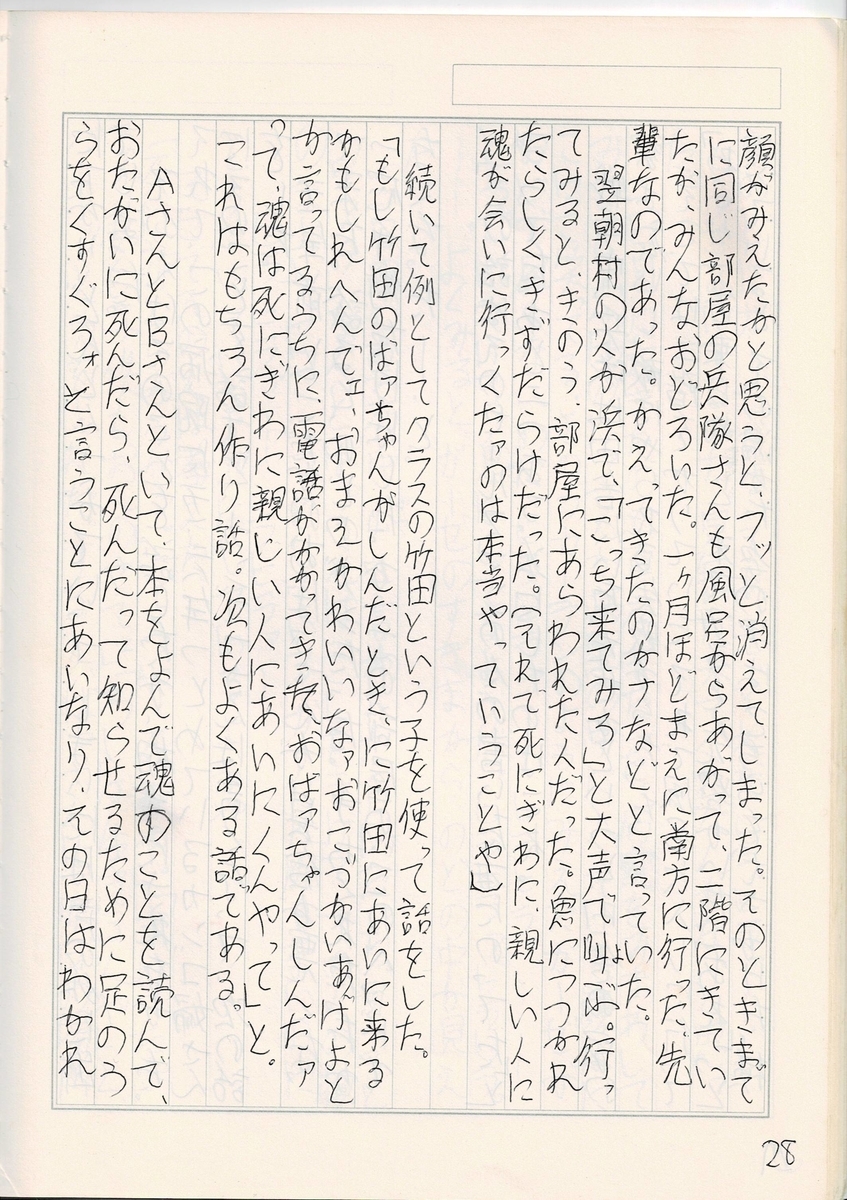 顔がみえたかと思うと、フッと消えてしまった。そのときまで
に同じ部屋の兵隊さんも風呂からあがって、二階にきてい
たが、みんなおどろいた。一ヶ月ほどまえに南方に行った先
輩なのであった。かえってきたのかナなどと言っていた。
翌朝村の人が浜で、「こっち来てみろ」と大声で叫ぶ。行っ
てみると、きのう、部屋にあらわれた人だった。魚につつかれ
たらしく、きずだらけだった。（それで死にぎわに、親しい人に
魂が会いに行っくたァのは本当やっていうことや」
続いて例としてクラスの竹田という子を使って話をした。
「もし竹田のばァちゃんがしんだとき、に竹田にあいに来る
かもしれへんでェ、おまえかわいいなァおこづかいあげよと
か言ってるうちに、電話がかかってきた、おばァちゃんしんだァ
って、魂は死にぎわに親しい人にあいにくんやって」と。
これはもちろん作り話。次もよくある話である。
AさんとBさんといて、本をよんで魂のことを読んで、
おたがいに死んだら、死んだって知らせるために足のう
らをくすぐろォと言うことにあいなり、その日はわかれ
28